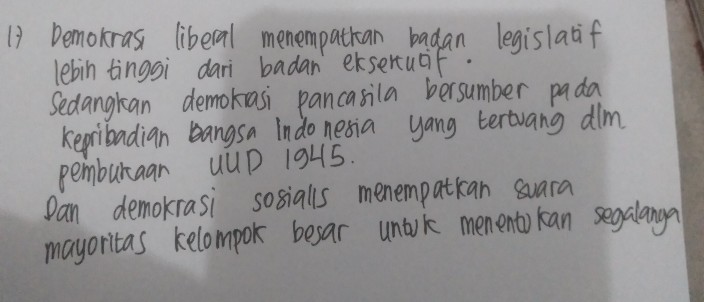 1) Demokrasi liberal menempatkan badan legislatif
lebih tinggi dari badan eksekutif.
Sedangkan demokrasi pancasila bersumber pada
kepribadian bangsa Indonesia yang tertuang dlm
pembukaan UUD 1945.
Dan demokrasi sosialis menempatkan suara
mayoritas kelompok besar untuk menentukan segalanya